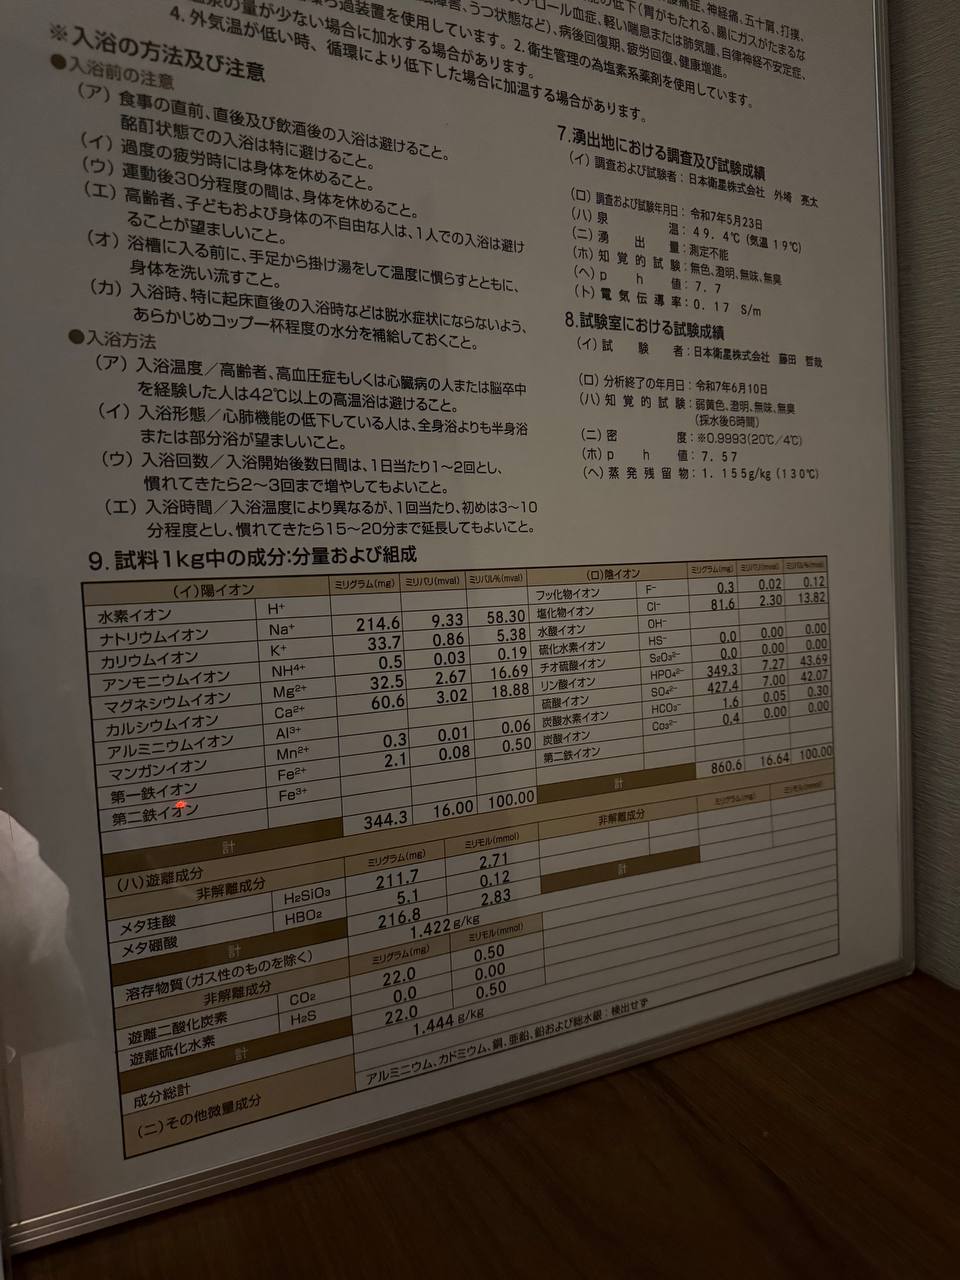 低下(胃がもたれる、腸にガスがたまるな
テロール血症、軽い喘息または肺気腫、自律神経不安定症、
障害、うつ状態など)、病後回復期、疲労回復、健康増進。
の量が少ない場合に加水する場合があります。2. 衛生管理の為塩素系薬剤を使用しています。
過装置を使用しています。
4. 外気温が低い時、循環により低下した場合に加温する場合があります。
※入浴の方法及び注意
●入浴前の注意
(ア) 食事の直前、直後及び飲酒後の入浴は避けること。
酩酊状態での入浴は特に避けること。
(イ) 過度の疲労時には身体を休めること。
(ウ) 運動後30分程度の間は、身体を休めること。
(エ) 高齢者、子どもおよび身体の不自由な人は、1人での入浴は避け
ることが望ましいこと。
(オ) 浴槽に入る前に、手足から掛け湯をして温度に慣らすとともに、
身体を洗い流すこと。
(カ) 入浴時、特に起床直後の入浴時などは脱水症状にならないよう、
あらかじめコップ一杯程度の水分を補給しておくこと。
●入浴方法
(ア) 入浴温度/高齢者、高血圧症もしくは心臓病の人または脳卒中
を経験した人は42℃以上の高温浴は避けること。
(イ) 入浴形態/心肺機能の低下している人は、全身浴よりも半身浴
または部分浴が望ましいこと。
(ウ) 入浴回数/入浴開始後数日間は、1日当たり1~2回とし、
慣れてきたら2~3回まで増やしてもよいこと。
(エ) 入浴時間/入浴温度により異なるが、1回当たり、初めは3~10
分程度とし、慣れてきたら15~20分まで延長してもよいこと。
7.湧出地における調査及び試験成績
(イ) 調査および試験者:日本衛星株式会社 外崎 亮太
(ロ) 調査および試験年月日:令和7年5月23日
(ハ) 泉 温:49.4℃(気温 19℃)
(ニ) 湧 出 量:測定不能
(ホ) 知覚的試験:無色、澄明、無味、無臭
(ヘ) p h 値:7.7
(ト) 電気伝導率:0.17 S/m
8.試験室における試験成績
(イ) 試 験 者:日本衛星株式会社 藤田 哲哉
(ロ) 分析終了の年月日:令和7年6月10日
(ハ) 知覚的試験:弱黄色、澄明、無味、無臭
(採水後6時間)
(ニ) 密 度:※0.9993(20℃/4℃)
(ホ) p h 値:7.57
(ヘ) 蒸発残留物:1.155g/kg(130℃)
9.試料1kg中の成分:分量および組成
(イ)陽イオン ミリグラム(mg) ミリバリ(mval) ミリバル%(mval)
水素イオン H+
ナトリウムイオン Na+ 214.6 9.33 58.30
カリウムイオン K+ 33.7 0.86 5.38
アンモニウムイオン NH4+ 0.5 0.03 0.19
マグネシウムイオン Mg2+ 32.5 2.67 16.69
カルシウムイオン Ca2+ 60.6 3.02 18.88
アルミニウムイオン Al3+
マンガンイオン Mn2+ 0.3 0.01 0.06
第一鉄イオン Fe2+ 2.1 0.08 0.50
第二鉄イオン Fe3+
計 344.3 16.00 100.00
(ロ)陰イオン ミリグラム(mg) ミリバリ(mval) ミリバル%(mval)
フッ化物イオン F- 0.3 0.02 0.12
塩化物イオン Cl- 81.6 2.30 13.82
水酸イオン OH-
硫化水素イオン HS- 0.0 0.00 0.00
チオ硫酸イオン S2O32- 0.0 0.00 0.00
リン酸イオン HPO42- 349.3 7.27 43.69
硫酸イオン SO42- 427.4 7.00 42.07
炭酸水素イオン HCO3- 1.6 0.05 0.30
炭酸イオン Co32- 0.4 0.00 0.00
第二鉄イオン
計 860.6 16.64 100.00
(ハ)遊離成分
非解離成分 ミリグラム(mg) ミリモル(mmol)
メタ珪酸 H2SiO3 211.7 2.71
メタ硼酸 HBO2 5.1 0.12
計 216.8 2.83
非解離成分 ミリグラム(mg) ミリモル(mmol)
計
溶存物質(ガス性のものを除く) 1.422g/kg
非解離成分 ミリグラム(mg) ミリモル(mmol)
遊離二酸化炭素 CO2 22.0 0.50
遊離硫化水素 H2S 0.0 0.00
計 22.0 0.50
成分総計 1.444 g/kg
(ニ)その他微量成分 アルミニウム、カドミウム、銅、亜鉛、鉛および総水銀:検出せず